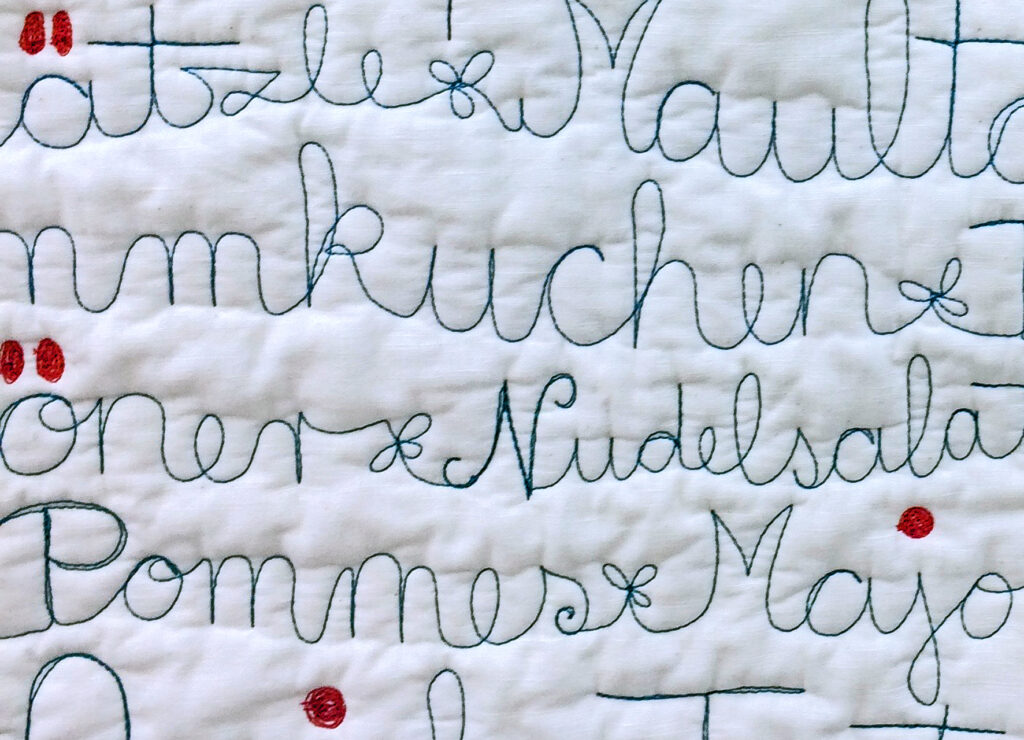 ätzle Maulta
mmkuchen
öner Nudelsalat
Pommes Majo